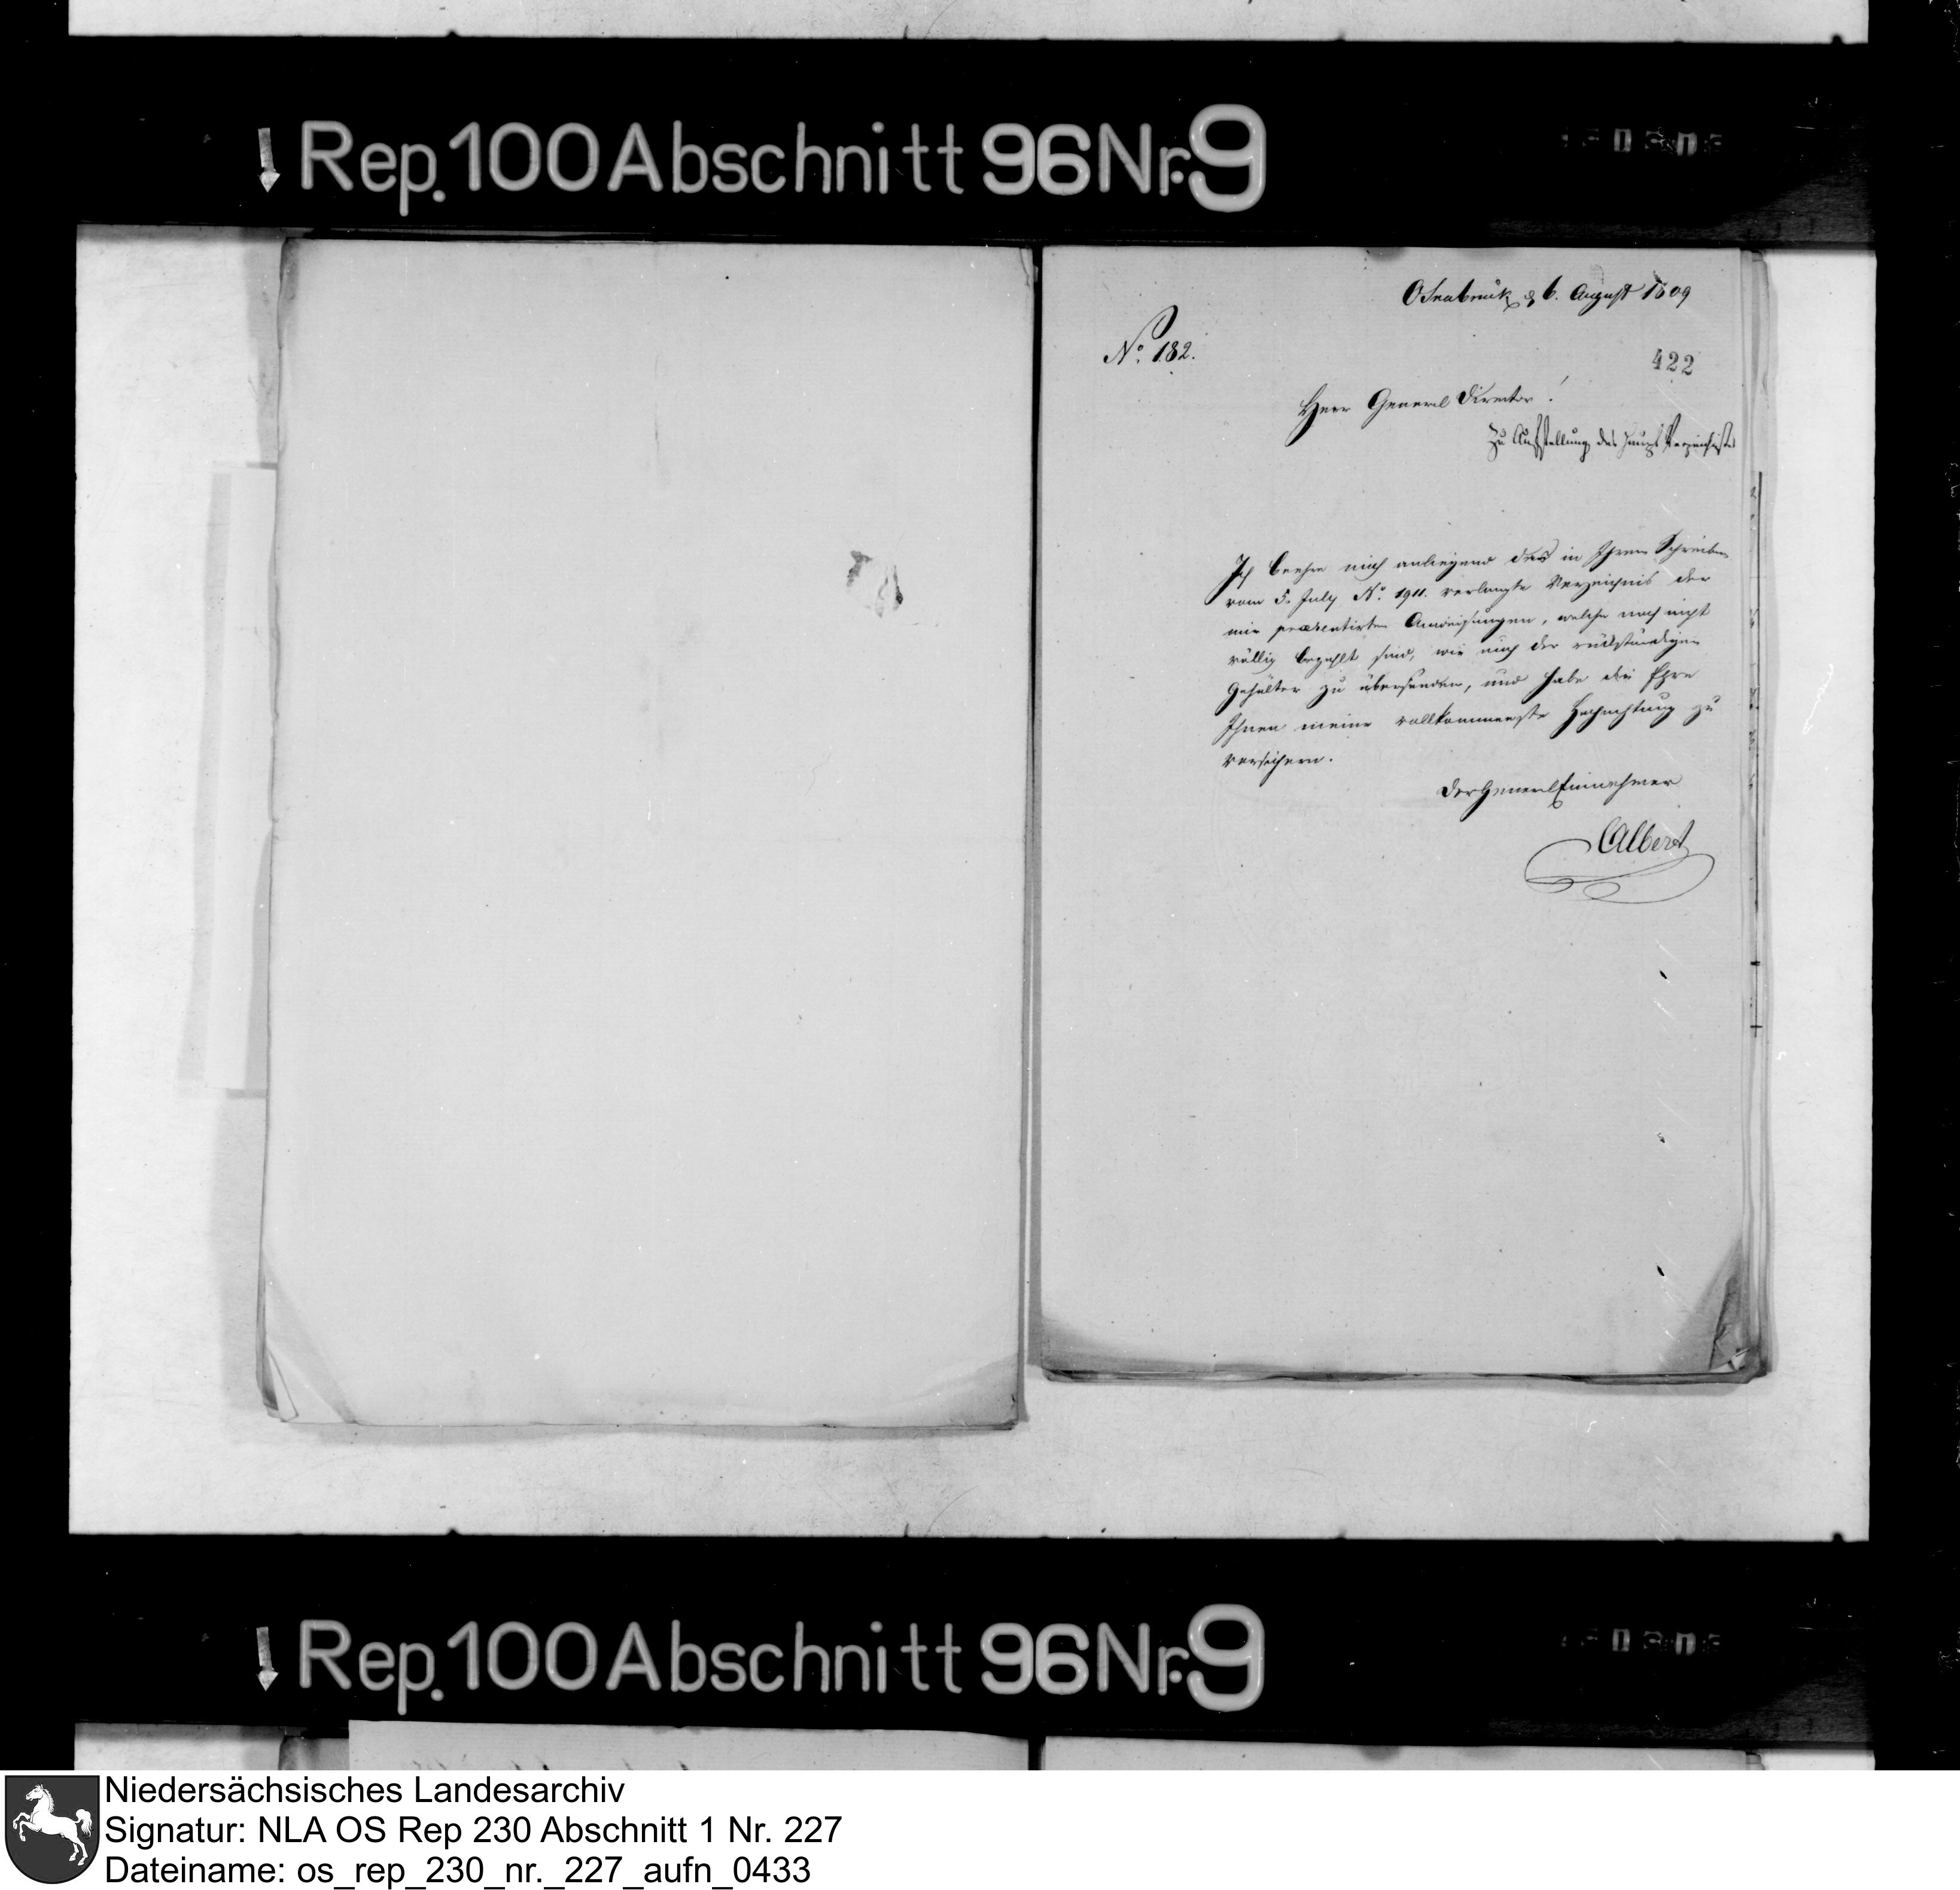 Rep. 100 Abschnitt 96 Nr. 9
Osnabrück d 6. August 1809
No. 182.
422
Herr General Director!
Zu Aufstellung des Haupt Verzeichnisses
Ich beehre mich anliegend das in Ihrem Schreiben
vom 5. July No. 1911. verlangte Verzeichnis der
mir præsentirten Anweisungen, welche noch nicht
völlig bezahlt sind, wie auch der rückständigen
Gehälter zu übersenden, und habe die Ehre
Ihnen meine vollkommenste Hochachtung zu
versichern.
Der General Einnehmer
Albers
Rep. 100 Abschnitt 96 Nr. 9
Niedersächsisches Landesarchiv
Signatur: NLA OS Rep 230 Abschnitt 1 Nr. 227
Dateiname: os_rep_230_nr._227_aufn_0433